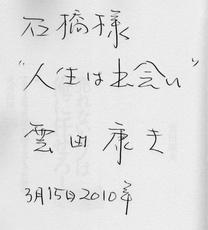 石橋様
"人生は出会い"
雲田康夫
3月15日2010年